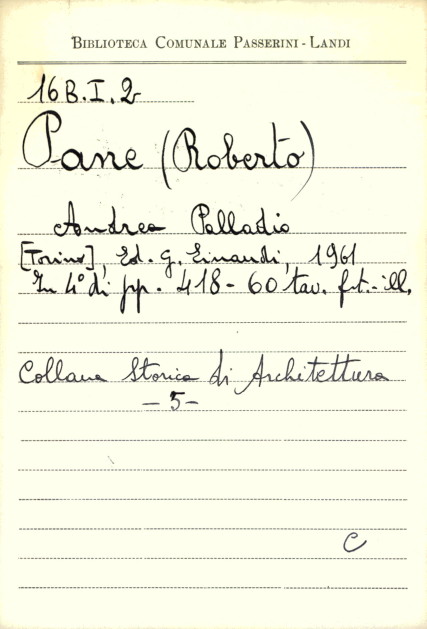 BIBLIOTECA COMUNALE PASSERINI - LANDI
16 B. I. 2
Pane (Roberto)
Andrea Palladio
[Torino], Ed. G. Einaudi, 1961
In 4° di pp. 418 - 60 tav. f.t. - ill.
Collana Storica di Architettura
- 5 -
C